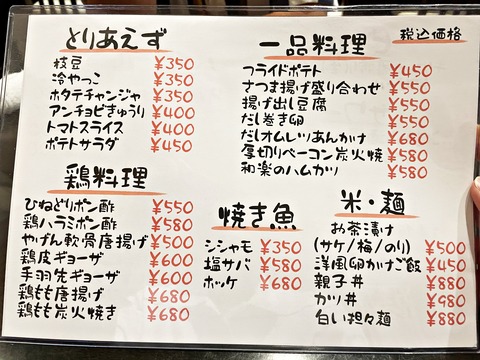 とりあえず
枝豆 ¥350
冷やっこ ¥350
ホタテチャンジャ ¥350
アンチョビきゅうり ¥400
トマトスライス ¥400
ポテトサラダ ¥450
税込価格
一品料理
フライドポテト ¥450
さつま揚げ盛り合わせ ¥550
揚げ出し豆腐 ¥550
だし巻き卵 ¥550
だしオムレツあんかけ ¥680
厚切りベーコン炭火焼 ¥580
和楽のハムカツ ¥580
鶏料理
ひねどりポン酢 ¥550
鶏ハラミポン酢 ¥580
やげん軟骨唐揚げ ¥500
鶏皮ギョーザ ¥600
手羽先ギョーザ ¥600
鶏もも唐揚げ ¥680
鶏もも炭火焼き ¥680
焼き魚
シシャモ ¥350
塩サバ ¥580
ホッケ ¥680
米・麺
お茶漬け
(サケ/梅/のり) ¥500
洋風卵かけご飯 ¥450
親子丼 ¥880
カツ丼 ¥980
白い担々麺 ¥880